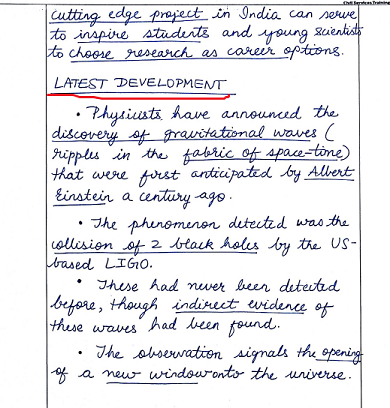 Civil Services Training
cutting edge project in India can serve
to inspire students and young scientists
to choose research as career options.
LATEST DEVELOPMENT
• Physiusts have announced the
discovery of gravitational waves (
ripples in the fabric of space-time)
that were first anticipated by Albert
Einstein a century ago.
• The phenomenon detected was the
collision of 2 black holes by the US-
based LIGO.
• These had never been detected
before, though indirect evidence of
these waves had been found.
• The observation signals the opening
of a new window onto the universe.